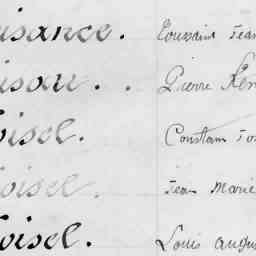 isance. Toussaint Jean
isou.. Pierre
oisel. Constant
oisel. Jean Marie
oisel. Louis Augus